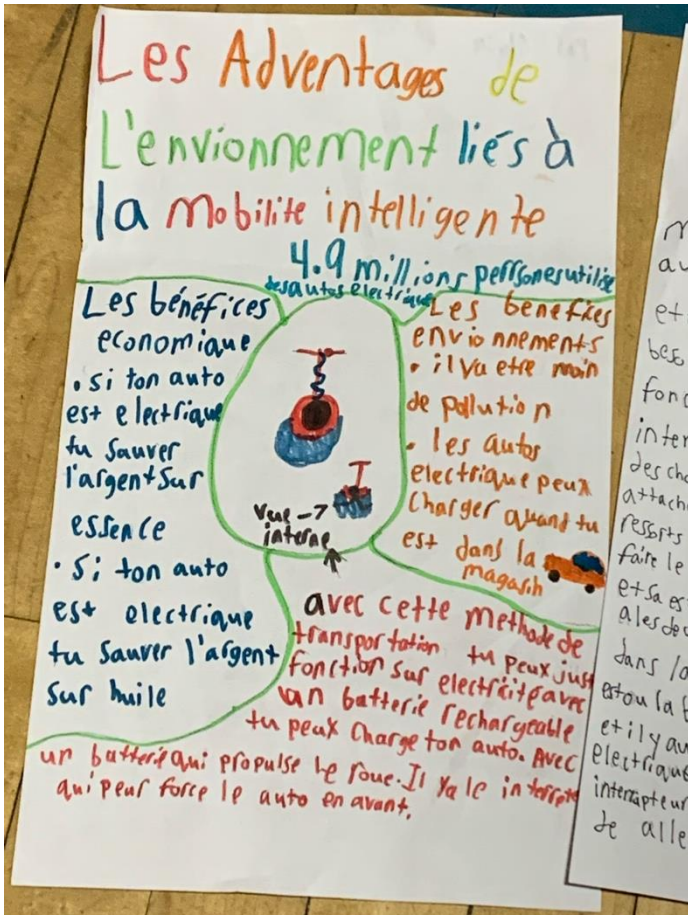 Les Adventages de
L'envionnement liés à
la mobilite intelligente
4.9 millions perrsones utilise
des autos electrique
Les bénéfices
economique
• si ton auto
est electrique
tu sauver
l'argent sur
essence
• Si ton auto
est electrique
tu sauver l'argent
sur huile
vue →
interne
Les benefices
envionnements
• il va etre moin
de pollution
• les autos
electrique peux
charger quant tu
est dans la
magasin
avec cette methode de
transportation tu peux just
fonction sur electricité avec
un batterie rechargeable
tu peux charge ton auto. Avec
un batterie qui propulse le roue. Il ya le
qui peur force le auto en avant.
et
beso
fonc
inter
des cha
attach
ressorts
faire le
et sa es
dans la
et il y au
electrique
interrapteur
de alle